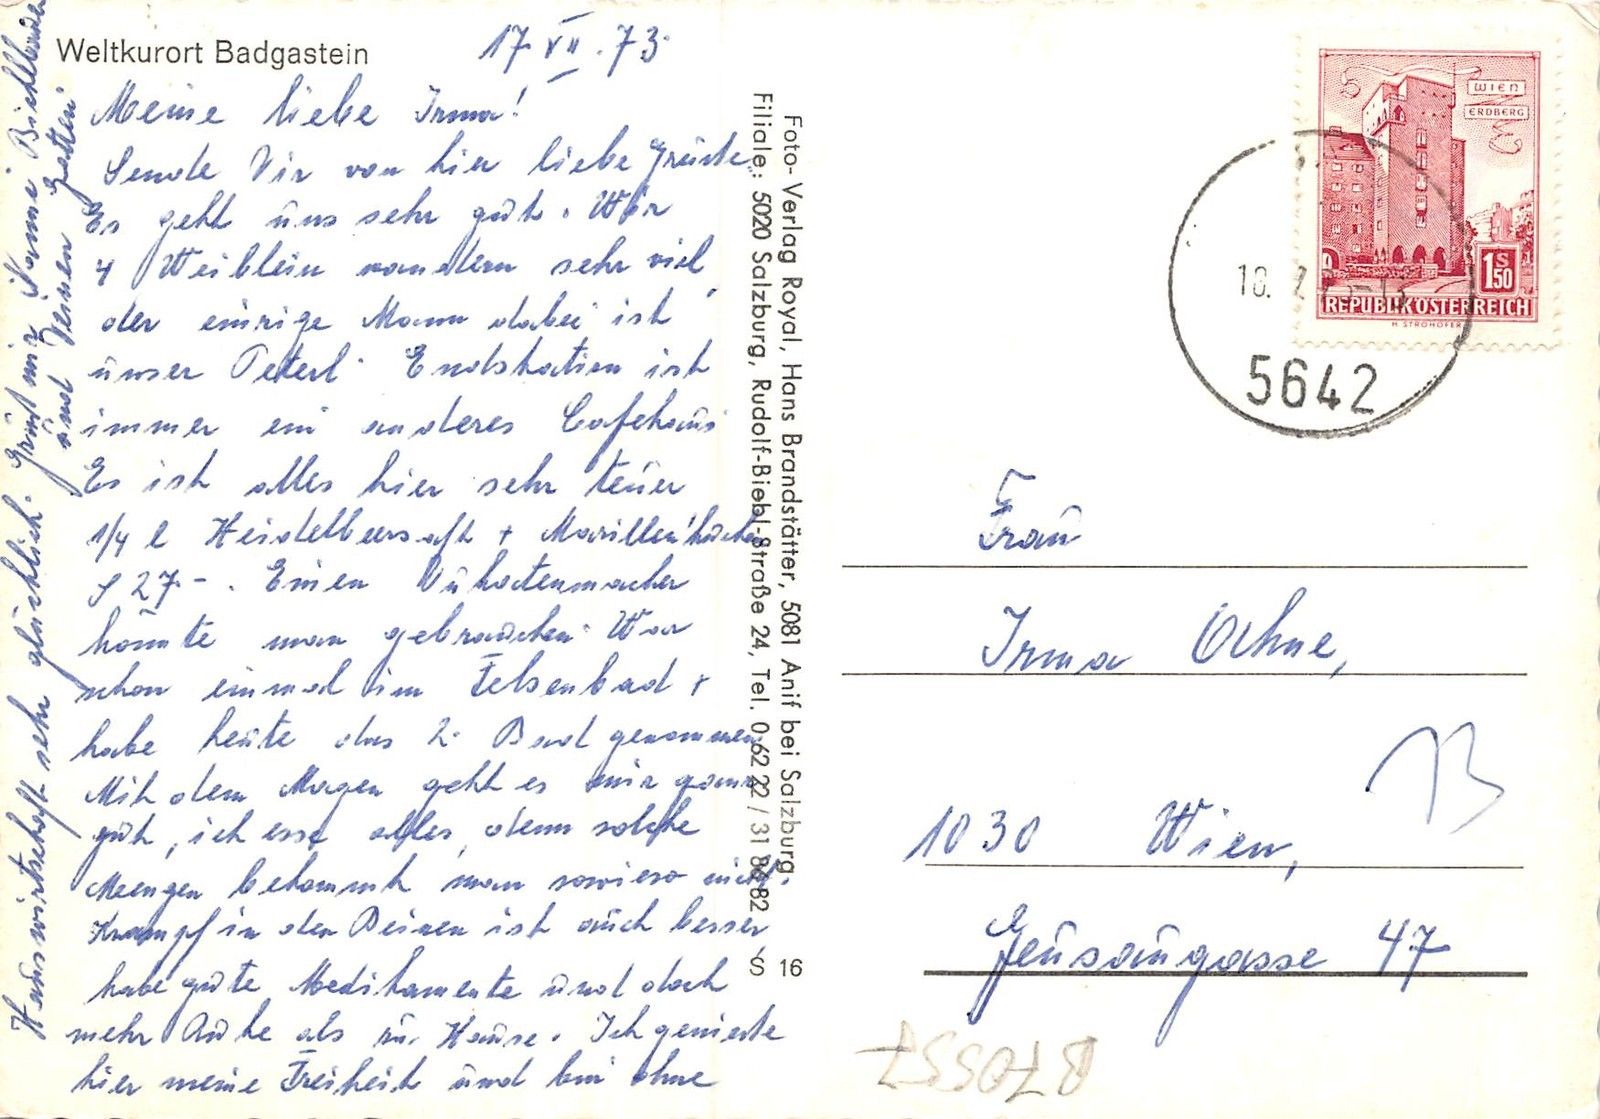 Weltkurort Badgastein
17. VII. 73.
Meine liebe Irma!
Sende Dir von hier liebe Grüsse.
Es geht uns sehr gut. Wir
4 Weiblein wandern sehr viel,
der einzige Mann dabei ist
unser Peterl. Endstation ist
immer ein anderes Cafehaus
Es ist alles hier sehr teuer
1/4 l Heidelbeersaft + Marillenkuchen
S 27.-. Einen Dukatenmacher
könnte man gebrauchen. War
schon einmal im Felsenbad +
habe heute das 2. Bad genommen
Mit dem Magen geht es mir ganz
gut, ich esse alles, denn solche
Mengen bekommt man sowieso nicht.
Krampf in den Beinen ist auch besser,
habe gute Medikamente und doch
mehr Ruhe als zu Hause. Ich genieße
hier meine Freiheit und bin ohne
Hauswirtschaft sehr glücklich. Grüsst mir
und Deinen Gatten
Foto-Verlag Royal, Hans Brandstätter, 5081 Anif bei Salzburg,
Filiale: 5020 Salzburg, Rudolf-Biebl-Straße 24, Tel. 0 62 22 / 31 86 82
16
S
WIEN
ERDBERG
S
1 50
REPUBLIK ÖSTERREICH
H. STROHOFER
5642
Frau
Irma Ohne,
1030 Wien,
Geusaugasse 47